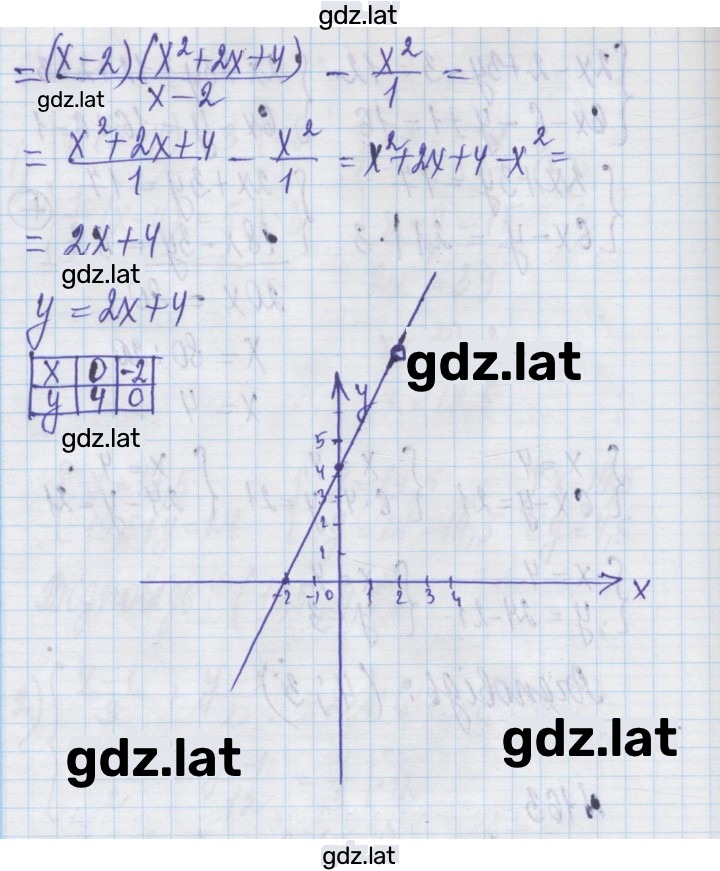 gdz.lat
= (x-2)(x²+2x+4) / x-2 - x²/1 =
gdz.lat
= x²+2x+4 / 1 - x²/1 = x²+2x+4-x² =
= 2x+4
gdz.lat
y = 2x+4
x 0 -2
y 4 0
gdz.lat
gdz.lat
y
5
4
3
2
1
-2 -1 0 1 2 3 4 x
gdz.lat
gdz.lat
gdz.lat